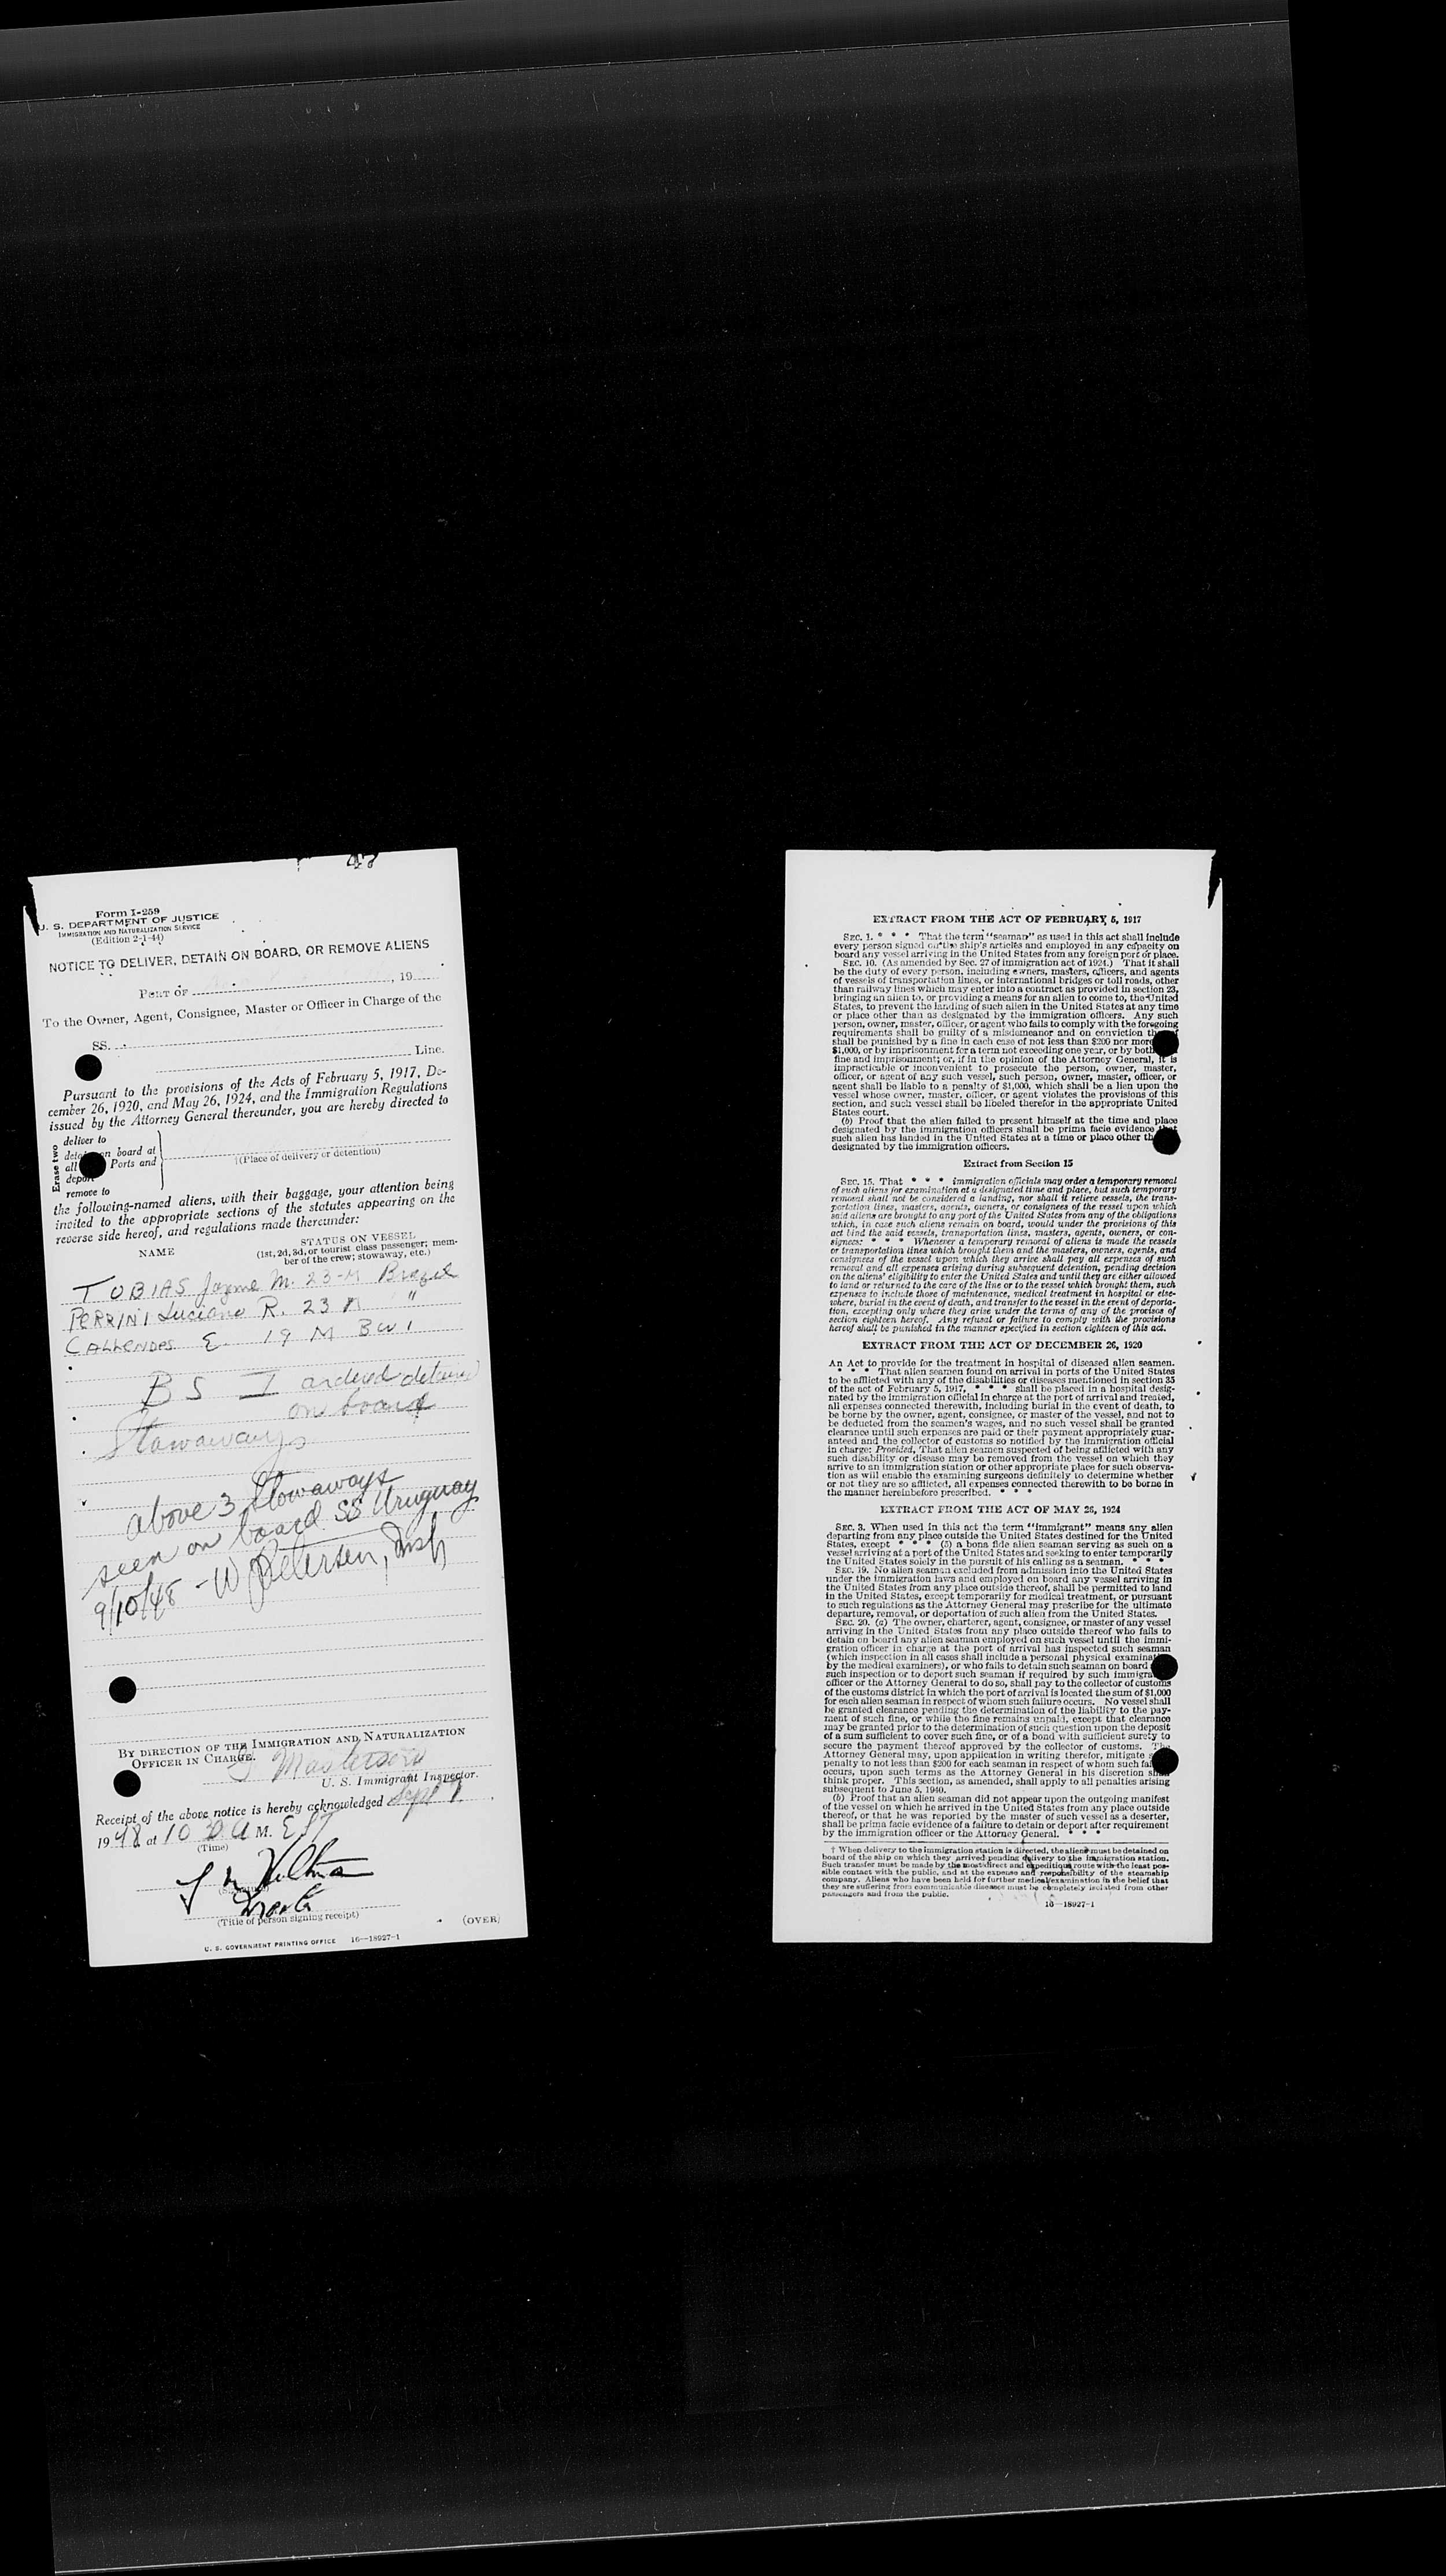 48
Form I-259
U. S. DEPARTMENT OF JUSTICE
IMMIGRATION AND NATURALIZATION SERVICE
(Edition 2-1-44)
NOTICE TO DELIVER, DETAIN ON BOARD, OR REMOVE ALIENS
PORT OF , 19
To the Owner, Agent, Consignee, Master or Officer in Charge of the
SS.
Line.
Pursuant to the provisions of the Acts of February 5, 1917, De-
cember 26, 1920, and May 26, 1924, and the Immigration Regulations
issued by the Attorney General thereunder, you are hereby directed to
Erase two
deliver to
detain on board at
all Ports and
deport
remove to
†(Place of delivery or detention)
the following-named aliens, with their baggage, your attention being
invited to the appropriate sections of the statutes appearing on the
reverse side hereof, and regulations made thereunder:
NAME
STATUS ON VESSEL
(1st, 2d, 3d, or tourist class passenger; mem-
ber of the crew; stowaway, etc.)
TOBIAS Jayme M. 23-M Brazil
PERRINI Luciano R. 23 M "
CALLENDER E. 19 M BWI
B S I ordered detained
on board
Stowaways
above 3 Stowaways
seen on board SS Uruguay
9/10/48 - W Petersen, Insp
BY DIRECTION OF THE IMMIGRATION AND NATURALIZATION
OFFICER IN CHARGE.
Masterson
U. S. Immigrant Inspector.
Receipt of the above notice is hereby acknowledged Sept 7,
1948 at 10 30 A M. EST
(Time)
(Title of person signing receipt)
(OVER)
U. S. GOVERNMENT PRINTING OFFICE 16—18927-1
EXTRACT FROM THE ACT OF FEBRUARY 5, 1917
SEC. 1. * * * That the term "seaman" as used in this act shall include
every person signed on the ship's articles and employed in any capacity on
board any vessel arriving in the United States from any foreign port or place.
SEC. 10. (As amended by Sec. 27 of immigration act of 1924.) That it shall
be the duty of every person, including owners, masters, officers, and agents
of vessels of transportation lines, or international bridges or toll roads, other
than railway lines which may enter into a contract as provided in section 23,
bringing an alien to, or providing a means for an alien to come to, the United
States, to prevent the landing of such alien in the United States at any time
or place other than as designated by the immigration officers. Any such
person, owner, master, officer, or agent who fails to comply with the foregoing
requirements shall be guilty of a misdemeanor and on conviction thereof
shall be punished by a fine in each case of not less than $200 nor more
$1,000, or by imprisonment for a term not exceeding one year, or by both
fine and imprisonment; or, if in the opinion of the Attorney General, it is
impracticable or inconvenient to prosecute the person, owner, master,
officer, or agent of any such vessel, such person, owner, master, officer, or
agent shall be liable to a penalty of $1,000, which shall be a lien upon the
vessel whose owner, master, officer, or agent violates the provisions of this
section, and such vessel shall be libeled therefor in the appropriate United
States court.
(b) Proof that the alien failed to present himself at the time and place
designated by the immigration officers shall be prima facie evidence that
such alien has landed in the United States at a time or place other th
designated by the immigration officers.
Extract from Section 15
SEC. 15. That * * * immigration officials may order a temporary removal
of such aliens for examination at a designated time and place, but such temporary
removal shall not be considered a landing, nor shall it relieve vessels, the trans-
portation lines, masters, agents, owners, or consignees of the vessel upon which
said aliens are brought to any port of the United States from any of the obligations
which, in case such aliens remain on board, would under the provisions of this
act bind the said vessels, transportation lines, masters, agents, owners, or con-
signees: * * * Whenever a temporary removal of aliens is made the vessels
or transportation lines which brought them and the masters, owners, agents, and
consignees of the vessel upon which they arrive shall pay all expenses of such
removal and all expenses arising during subsequent detention, pending decision
on the aliens' eligibility to enter the United States and until they are either allowed
to land or returned to the care of the line or to the vessel which brought them, such
expenses to include those of maintenance, medical treatment in hospital or else-
where, burial in the event of death, and transfer to the vessel in the event of deporta-
tion, excepting only where they arise under the terms of any of the provisos of
section eighteen hereof. Any refusal or failure to comply with the provisions
hereof shall be punished in the manner specified in section eighteen of this act.
EXTRACT FROM THE ACT OF DECEMBER 26, 1920
An Act to provide for the treatment in hospital of diseased alien seamen.
* * * That alien seamen found on arrival in ports of the United States
to be afflicted with any of the disabilities or diseases mentioned in section 35
of the act of February 5, 1917, * * * shall be placed in a hospital desig-
nated by the immigration official in charge at the port of arrival and treated,
all expenses connected therewith, including burial in the event of death, to
be borne by the owner, agent, consignee, or master of the vessel, and not to
be deducted from the seamen's wages, and no such vessel shall be granted
clearance until such expenses are paid or their payment appropriately guar-
anteed and the collector of customs so notified by the immigration official
in charge: Provided, That alien seamen suspected of being afflicted with any
such disability or disease may be removed from the vessel on which they
arrive to an immigration station or other appropriate place for such observa-
tion as will enable the examining surgeons definitely to determine whether
or not they are so afflicted, all expenses connected therewith to be borne in
the manner hereinbefore prescribed. * * *
EXTRACT FROM THE ACT OF MAY 26, 1924
SEC. 3. When used in this act the term "immigrant" means any alien
departing from any place outside the United States destined for the United
States, except * * * (5) a bona fide alien seaman serving as such on a
vessel arriving at a port of the United States and seeking to enter temporarily
the United States solely in the pursuit of his calling as a seaman. * * *
SEC. 19. No alien seaman excluded from admission into the United States
under the immigration laws and employed on board any vessel arriving in
the United States from any place outside thereof, shall be permitted to land
in the United States, except temporarily for medical treatment, or pursuant
to such regulations as the Attorney General may prescribe for the ultimate
departure, removal, or deportation of such alien from the United States.
SEC. 20. (a) The owner, charterer, agent, consignee, or master of any vessel
arriving in the United States from any place outside thereof who fails to
detain on board any alien seaman employed on such vessel until the immi-
gration officer in charge at the port of arrival has inspected such seaman
(which inspection in all cases shall include a personal physical examinat
by the medical examiners), or who fails to detain such seaman on board
such inspection or to deport such seaman if required by such immigra
officer or the Attorney General to do so, shall pay to the collector of customs
of the customs district in which the port of arrival is located the sum of $1,000
for each alien seaman in respect of whom such failure occurs. No vessel shall
be granted clearance pending the determination of the liability to the pay-
ment of such fine, or while the fine remains unpaid, except that clearance
may be granted prior to the determination of such question upon the deposit
of a sum sufficient to cover such fine, or of a bond with sufficient surety to
secure the payment thereof approved by the collector of customs. The
Attorney General may, upon application in writing therefor, mitigate
penalty to not less than $200 for each seaman in respect of whom such fai
occurs, upon such terms as the Attorney General in his discretion shall
think proper. This section, as amended, shall apply to all penalties arising
subsequent to June 5, 1940.
(b) Proof that an alien seaman did not appear upon the outgoing manifest
of the vessel on which he arrived in the United States from any place outside
thereof, or that he was reported by the master of such vessel as a deserter,
shall be prima facie evidence of a failure to detain or deport after requirement
by the immigration officer or the Attorney General. * * *
† When delivery to the immigration station is directed, the aliens must be detained on
board of the ship on which they arrived pending delivery to the immigration station.
Such transfer must be made by the most direct and expeditious route with the least pos-
sible contact with the public, and at the expense and responsibility of the steamship
company. Aliens who have been held for further medical examination in the belief that
they are suffering from communicable diseases must be completely isolated from other
passengers and from the public.
16—18927-1